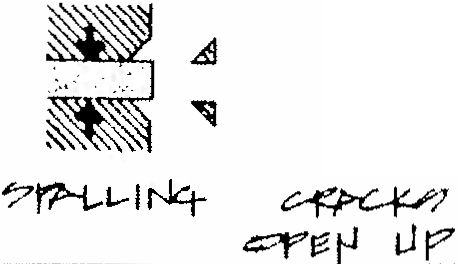 SPALLING
CRACKS
OPEN UP